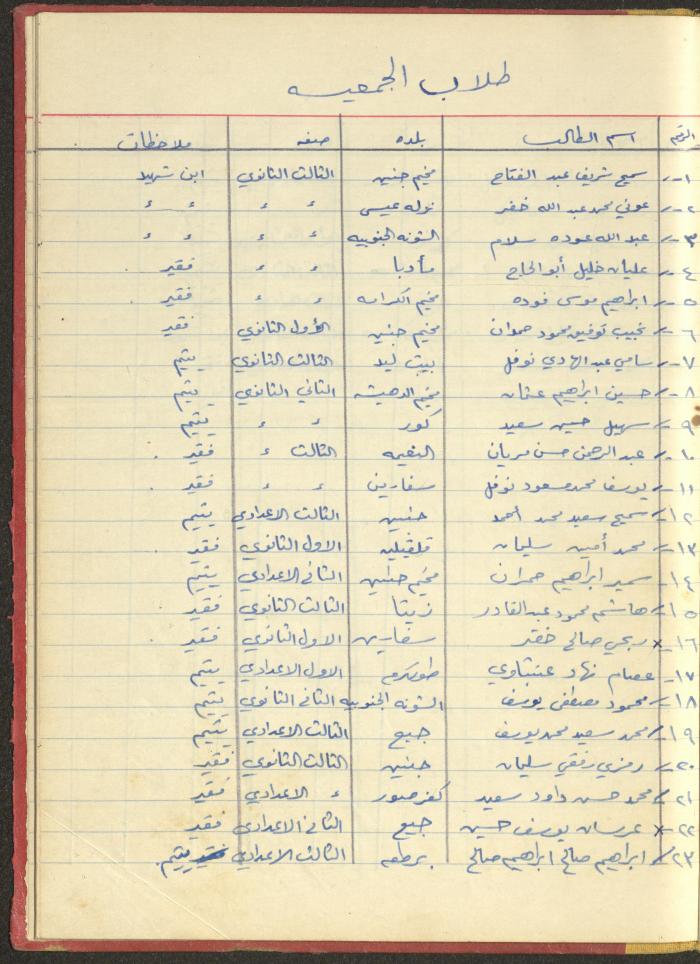 طلاب الجمعيه
الرقم اسم الطالب بلده صفه ملاحظات
١- سميح شريف عبد الفتاح مخيم جنين الثالث الثانوي ابن شهيد
٢- عوني محمد عبد الله خضر نزله عيسى ء ء ء ء
٣- عبد الله عوده سلام الشونه الجنوبيه ء ء ء ء
٤- عليان خليل أبو الحاج مأدبا ء ء فقير
٥- ابراهيم موسى فوده مخيم الكرامه ء ء فقير
٦- نجيب توفيق محمود مخيم جنين الأول الثانوي فقير
٧- سامي عبد الهادي نوفل بيت ليد الثالث الثانوي يتيم
٨- حسين ابراهيم عثمان مخيم الدهيشه الثاني الثانوي يتيم
٩- سهيل حسين سعيد كور ء ء يتيم
١٠- عبد الرحمن حسن مريان الثالث ء فقير
١١- يوسف محمد مسعود نوفل سفارين ء ء فقير
١٢- سميح سعيد محمد احمد جنين الثالث الاعدادي يتيم
١٣- محمد أمين سليمان قلقيليه الاول الثانوي فقير
١٤- سمير ابراهيم حمران مخيم جنين الثاني الاعدادي يتيم
١٥- هاشم محمود عبد القادر زيتا الثالث الثانوي فقير
x ١٦- ربحي صالح خضر سفارين الاول الثانوي فقير
١٧- عصام نهاد عنبتاوي طولكرم الاول الاعدادي يتيم
١٨- محمود مصطفى يوسف الشونه الجنوبيه الثاني الثانوي يتيم
١٩- محمد سعيد محمد يوسف جبع الثالث الاعدادي يتيم
٢٠- رمزي رفقي سليمان جنين الثالث الثانوي فقير
٢١- محمد حسن داود سعيد كفر صور ء الاعدادي فقير
x ٢٢- عرسان يوسف حسين جبع الثاني الاعدادي فقير
٢٣- ابراهيم صالح ابراهيم صالح برطعه الثالث الاعدادي يتيم